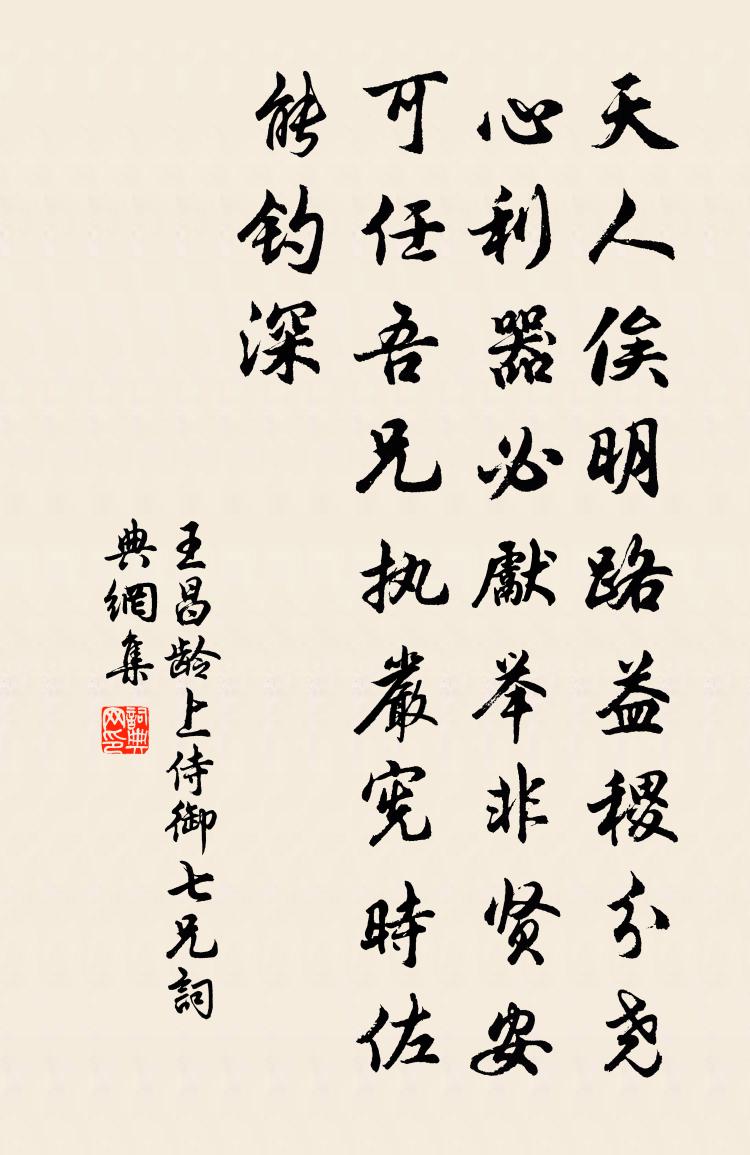 天人俟明路益稷分尧
心利器必獻举非贤安
可任吾兄执嚴宪時佐
能钓深
王昌龄上侍御七兄詞
典網集
詞典
网印